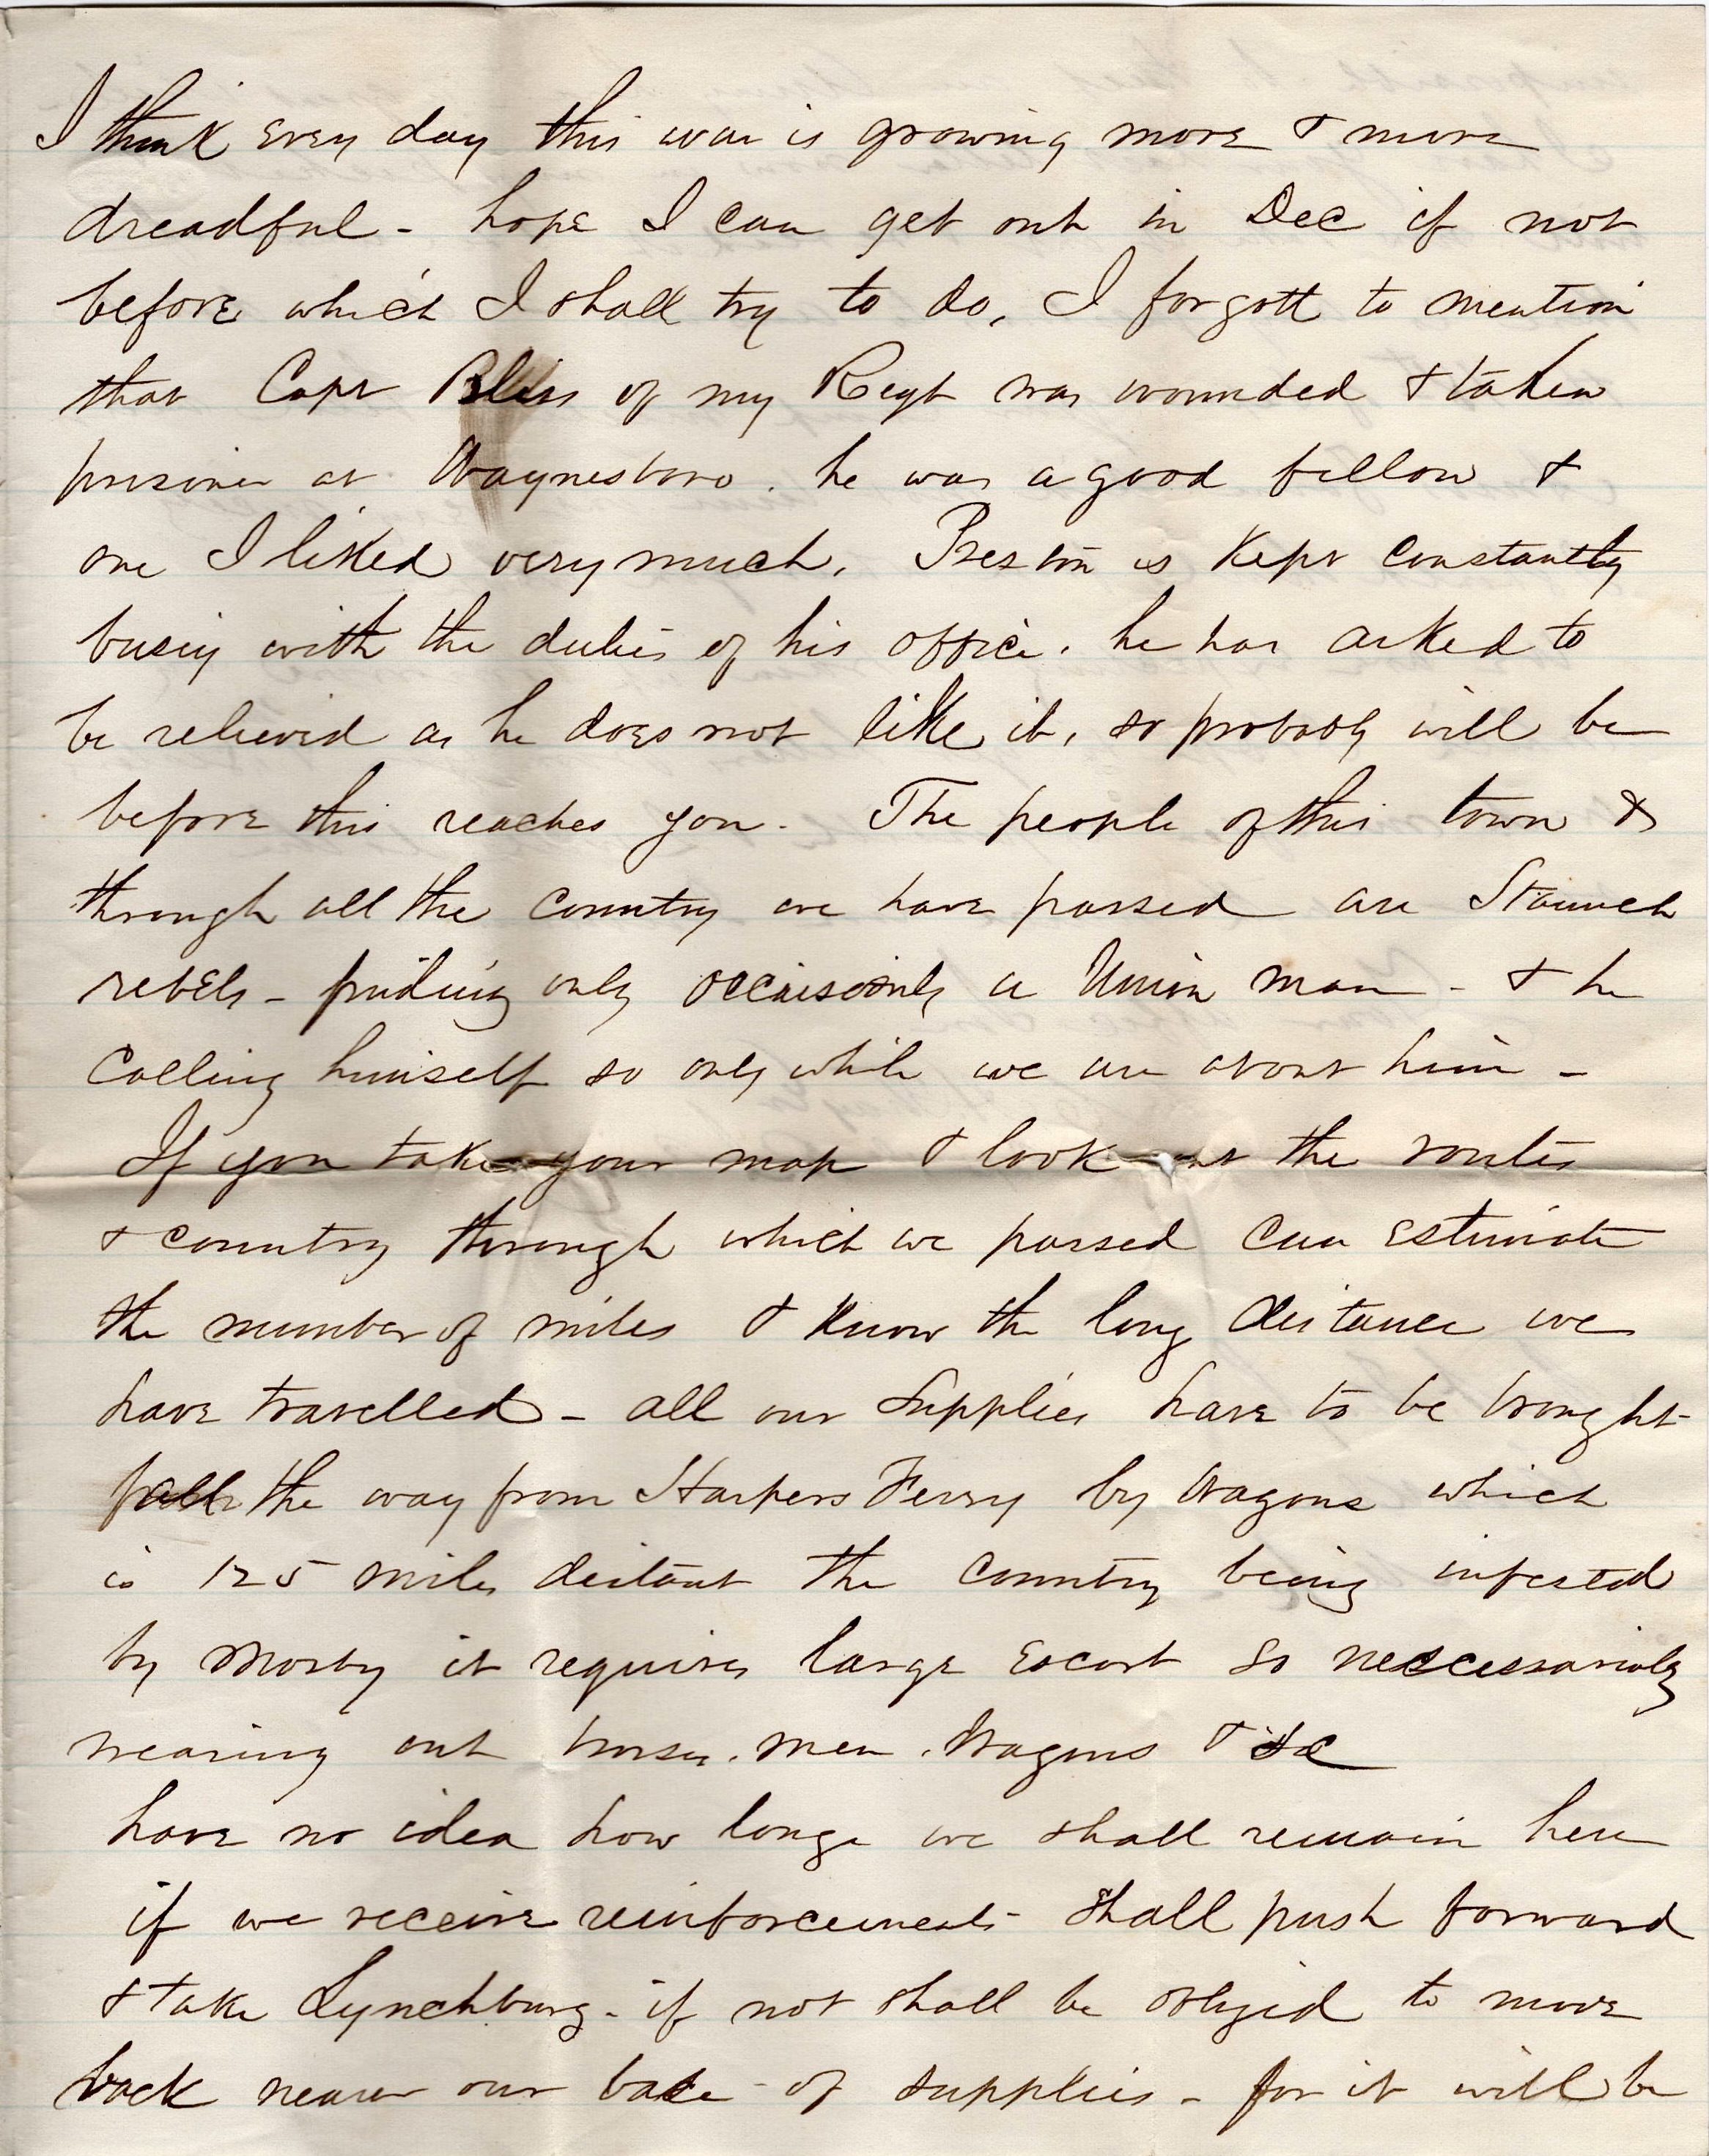 I think every day this war is growing more & more
dreadful - hope I can get out in Dec if not
before which I shall try to do, I forgott to mention
that Capt Bliss of my Regt was wounded & taken
prisoner at Waynesboro. he was a good fellow &
one I liked very much. Preston is kept constantly
busiy with the duties of his office. he has asked to
be relieved as he does not like it, so probably will be
before this reaches you. The people of this town &
through all the country we have passed are Staunch
rebels - finding only occaisionly a Union man - & he
calling himself so only while we are about him -
If you take your map & look at the routes
& country through which we passed can estimate
the number of miles & know the long distance we
have travelled - all our supplies have to be brought
all the way from Harpers Ferry by Wagons which
is 125 miles distant the country being infested
by Mosby it requires large escort so neccessarialy
wearing out horses. men. Wagons & &c
have no idea how longe we shall remain here
if we receive reinforcements shall push forward
& take Lynchburg - if not shall be obliged to move
back nearer our base of supplies - for it will be